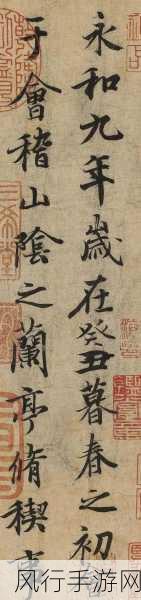 永和九年歲在癸丑暮春之初
于會稽山陰之蘭亭脩稧事
风行手游网